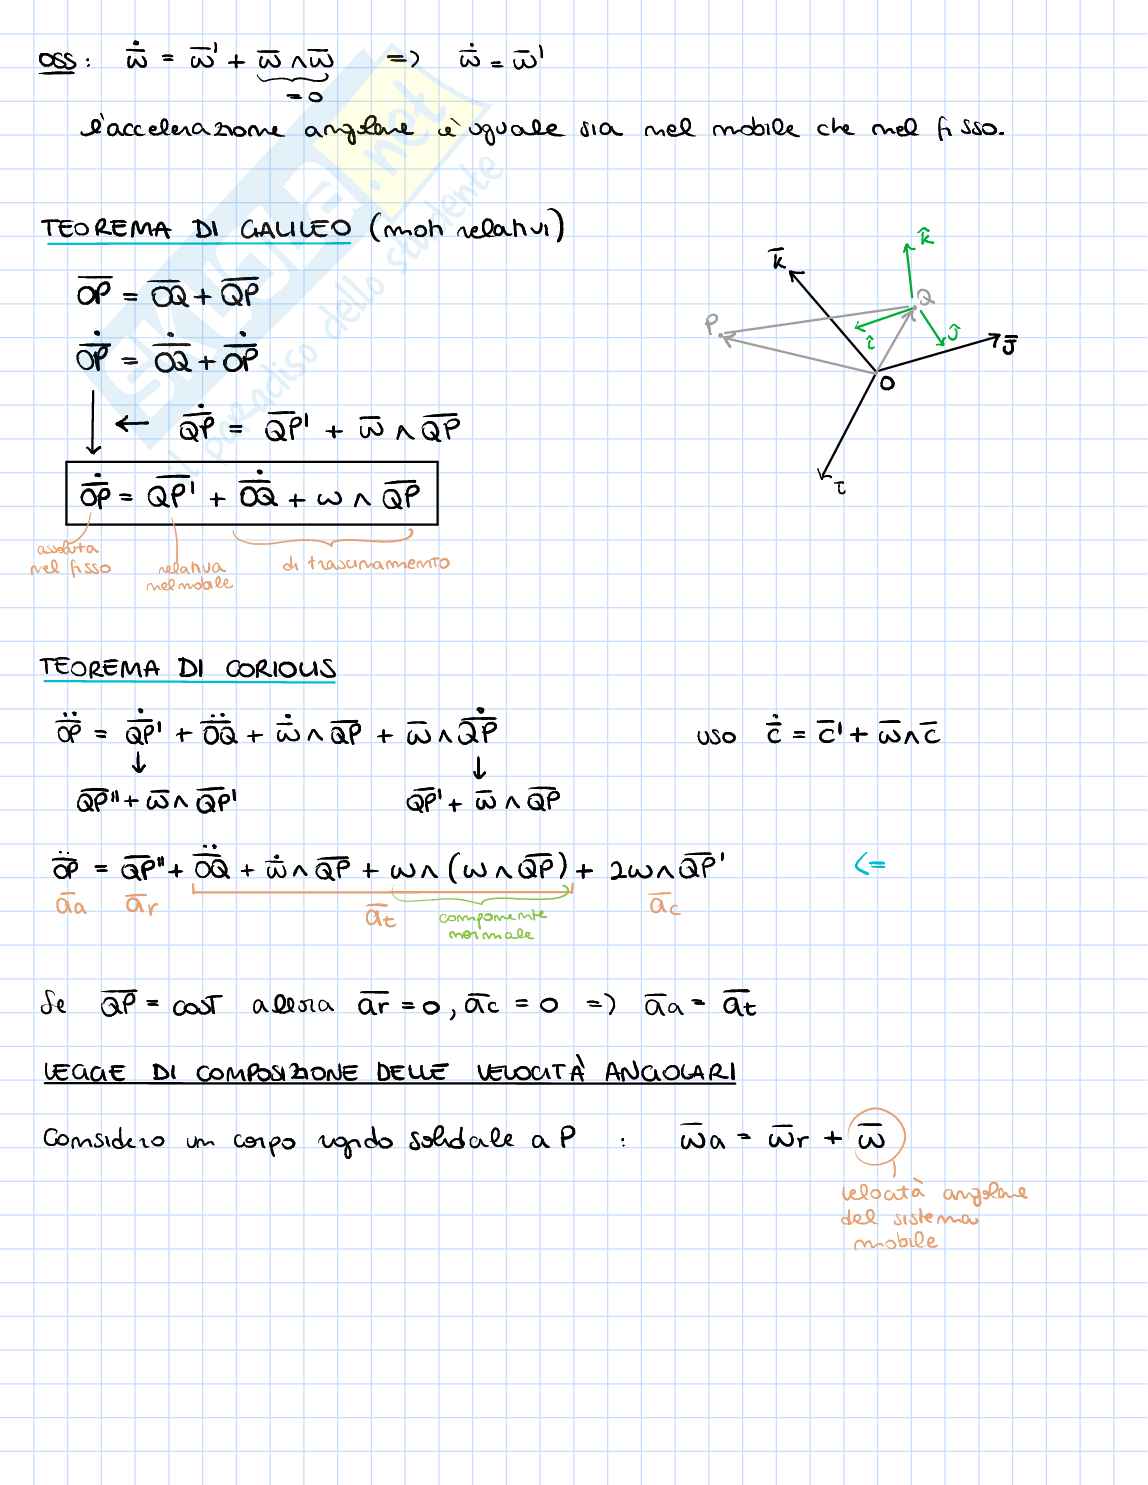 oss: ω̄̇ = ω̄' + ω̄ ∧ ω̄ => ω̄̇ = ω̄'
= 0
l'accelerazione angolare è uguale sia nel mobile che nel fisso.
TEOREMA DI GALILEO (moti relativi)
O̅P̅ = O̅Q̅ + Q̅P̅
O̅P̅̇ = O̅Q̅̇ + O̅P̅̇
↓ ← Q̅P̅̇ = Q̅P̅' + ω̄ ∧ Q̅P̅
O̅P̅̇ = Q̅P̅' + O̅Q̅̇ + ω ∧ Q̅P̅
assoluta nel fisso
relativa nel mobile
di trascinamento
k̄
k̂
P
Q
î
ĵ
J̄
O
ī
TEOREMA DI CORIOLIS
O̅P̅̈ = Q̅P̅̇' + O̅Q̅̈ + ω̄̇ ∧ Q̅P̅ + ω̄ ∧ Q̅P̅̇ uso c̄̇ = c̄' + ω̄ ∧ c̄
↓ ↓
Q̅P̅'' + ω̄ ∧ Q̅P̅' Q̅P̅' + ω̄ ∧ Q̅P̅
O̅P̅̈ = Q̅P̅'' + O̅Q̅̈ + ω̄̇ ∧ Q̅P̅ + ω ∧ (ω ∧ Q̅P̅) + 2ω ∧ Q̅P̅' <=
āa ār āt āc
componente
normale
Se Q̅P̅ = cost allora ār = 0, āc = 0 => āa = āt
LEGGE DI COMPOSIZIONE DELLE VELOCITÀ ANGOLARI
Considero un corpo rigido solidale a P : ω̄a = ω̄r + ω̄
velocità angolare
del sistema
mobile
skuola.net
il paradiso dello studente